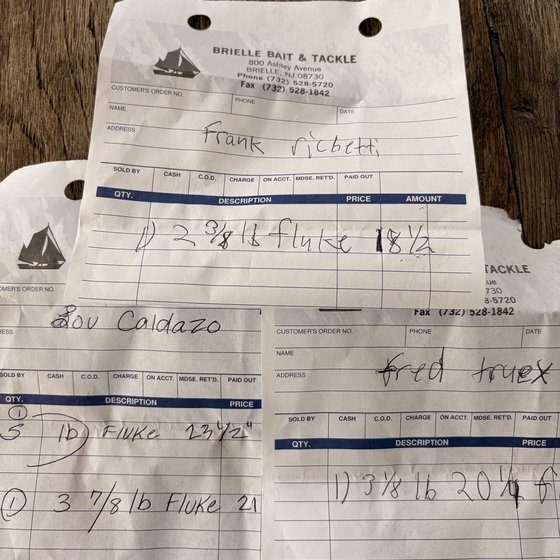 BRIELLE BAIT & TACKLE
800 Ashley Avenue
BRIELLE, NJ 08730
Phone (732) 528-5720
Fax (732) 528-1842
CUSTOMER'S ORDER NO. PHONE DATE
NAME
ADDRESS
Frank ricbetti
SOLD BY CASH C.O.D. CHARGE ON ACCT. MDSE. RET'D. PAID OUT
QTY. DESCRIPTION PRICE AMOUNT
1) 2 3/8 lb fluke 18 1/2
OMER'S ORDER NO.
ESS
Lou Caldazo
SOLD BY CASH C.O.D. CHARGE ON ACCT. MDSE. RET'D. PAID OUT
QTY. DESCRIPTION PRICE
①
5 lb Fluke 23 1/2"
① 3 7/8 lb Fluke 21
TACKLE
730
8-5720
Fax (732) 528-1842
CUSTOMER'S ORDER NO. PHONE
NAME
ADDRESS
fred truex
SOLD BY CASH C.O.D. CHARGE ON ACCT. MDSE. RET'D. PAID OUT
QTY. DESCRIPTION PRICE
1) 3 1/8 lb 20 f